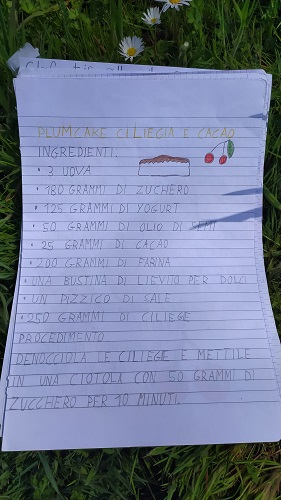 PLUMCAKE CILIEGIA E CACAO
INGREDIENTI:
• 3 UOVA
• 180 GRAMMI DI ZUCHERO
• 125 GRAMMI DI YOGURT
• 50 GRAMMI DI OLIO DI SEMI
• 25 GRAMMI DI CACAO
• 200 GRAMMI DI FARINA
• UNA BUSTINA DI LIEVITO PER DOLCI
• UN PIZZICO DI SALE
• 250 GRAMMI DI CILIEGE
PROCEDIMENTO
DENOCCIOLA LE CILIEGE E METTILE
IN UNA CIOTOLA CON 50 GRAMMI DI
ZUCCHERO PER 10 MINUTI.